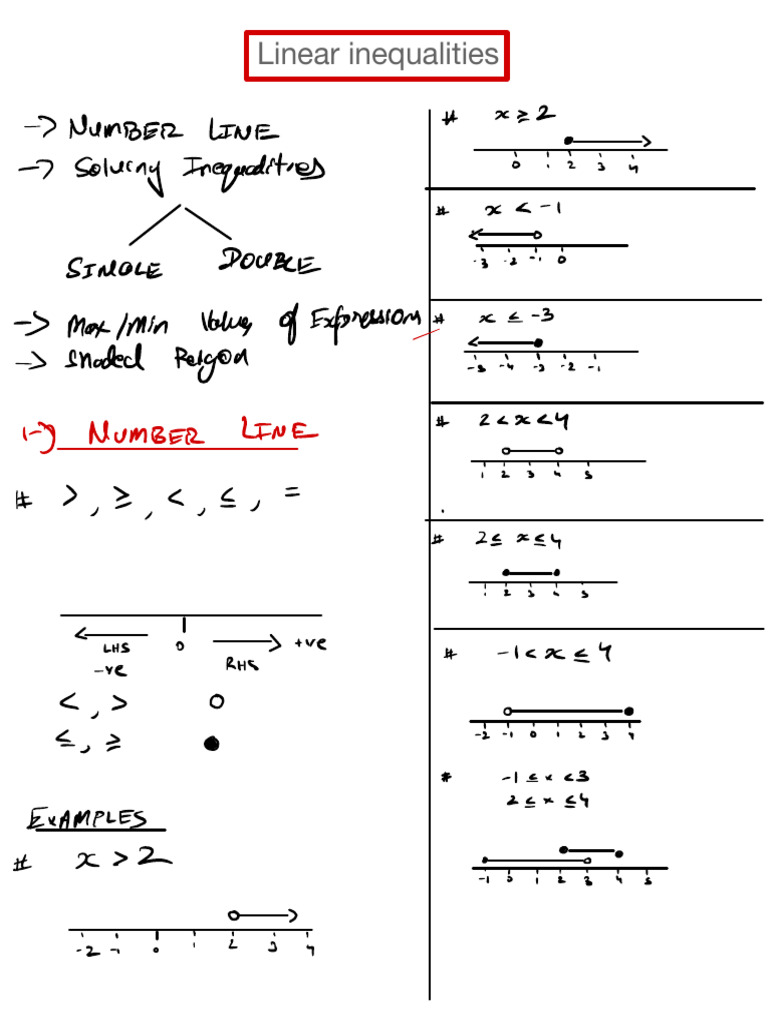 Linear inequalities
-> NUMBER LINE
-> Solving Inequalities
SINGLE DOUBLE
-> Max/Min Value of Expression
-> Shaded Reigon
1-> NUMBER LINE
# >, ≥, <, ≤, =
0
LHS RHS +ve
-ve
<, >
≤, ≥
EXAMPLES
# x > 2
-2 -1 0 1 2 3 4
# x ≥ 2
0 1 2 3 4
# x < -1
-3 -2 -1 0
# x ≤ -3
-5 -4 -3 -2 -1
# 2 < x < 4
1 2 3 4 5
# 2 ≤ x ≤ 4
1 2 3 4 5
# -1 < x ≤ 4
-2 -1 0 1 2 3 4
# -1 ≤ x < 3
2 ≤ x ≤ 4
-1 0 1 2 3 4 5